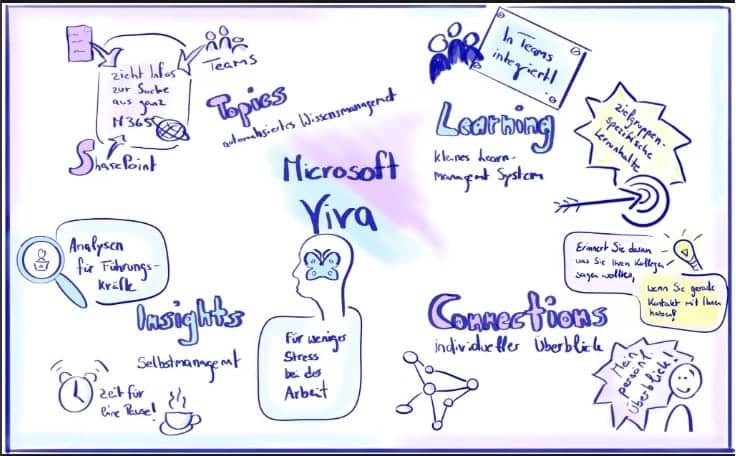 zieht Infos
zur Suche
aus ganz
M365
Teams
SharePoint
Topics
automatisiertes Wissensmanagement
In Teams
integriert!
Learning
kleines Learn-
Managment System
zielgruppen-
spezifische
Lerninhalte
Microsoft
Viva
Analysen
für Führungs-
kräfte
Insights
Selbstmanagemt
Zeit für
eine Pause!
Für weniger
Stress
bei der
Arbeit
Erinnert Sie daran
was Sie Ihren Kollegen
sagen wollten,
wenn Sie gerade
Kontakt mit Ihnen
haben!
Connections
individueller Überblick
Mein
persönl.
Überblick!